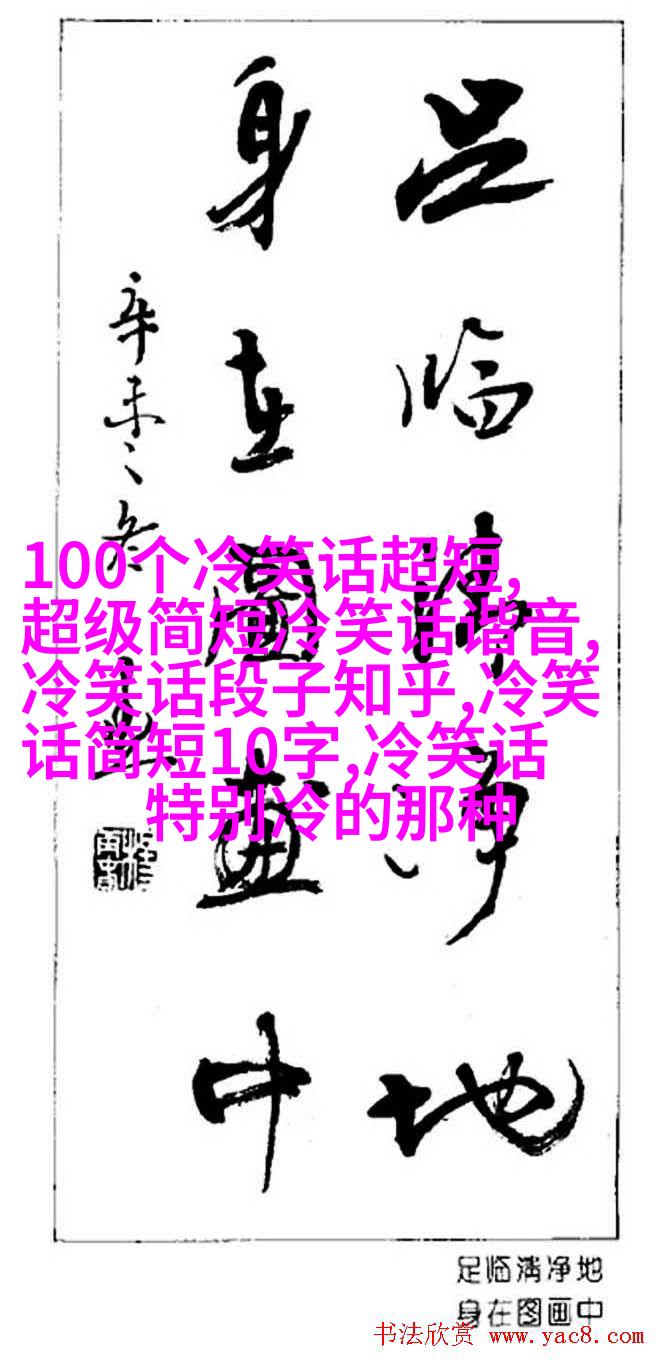 足临清净地
身在圖畫中
辛未之冬
100个冷笑话超短,
超级简短冷笑话谐音,
冷笑话段子知乎,冷笑
话简短10字,冷笑话
特别冷的那种
足临清净地
身在图画中
书法欣赏 www.yac8.com